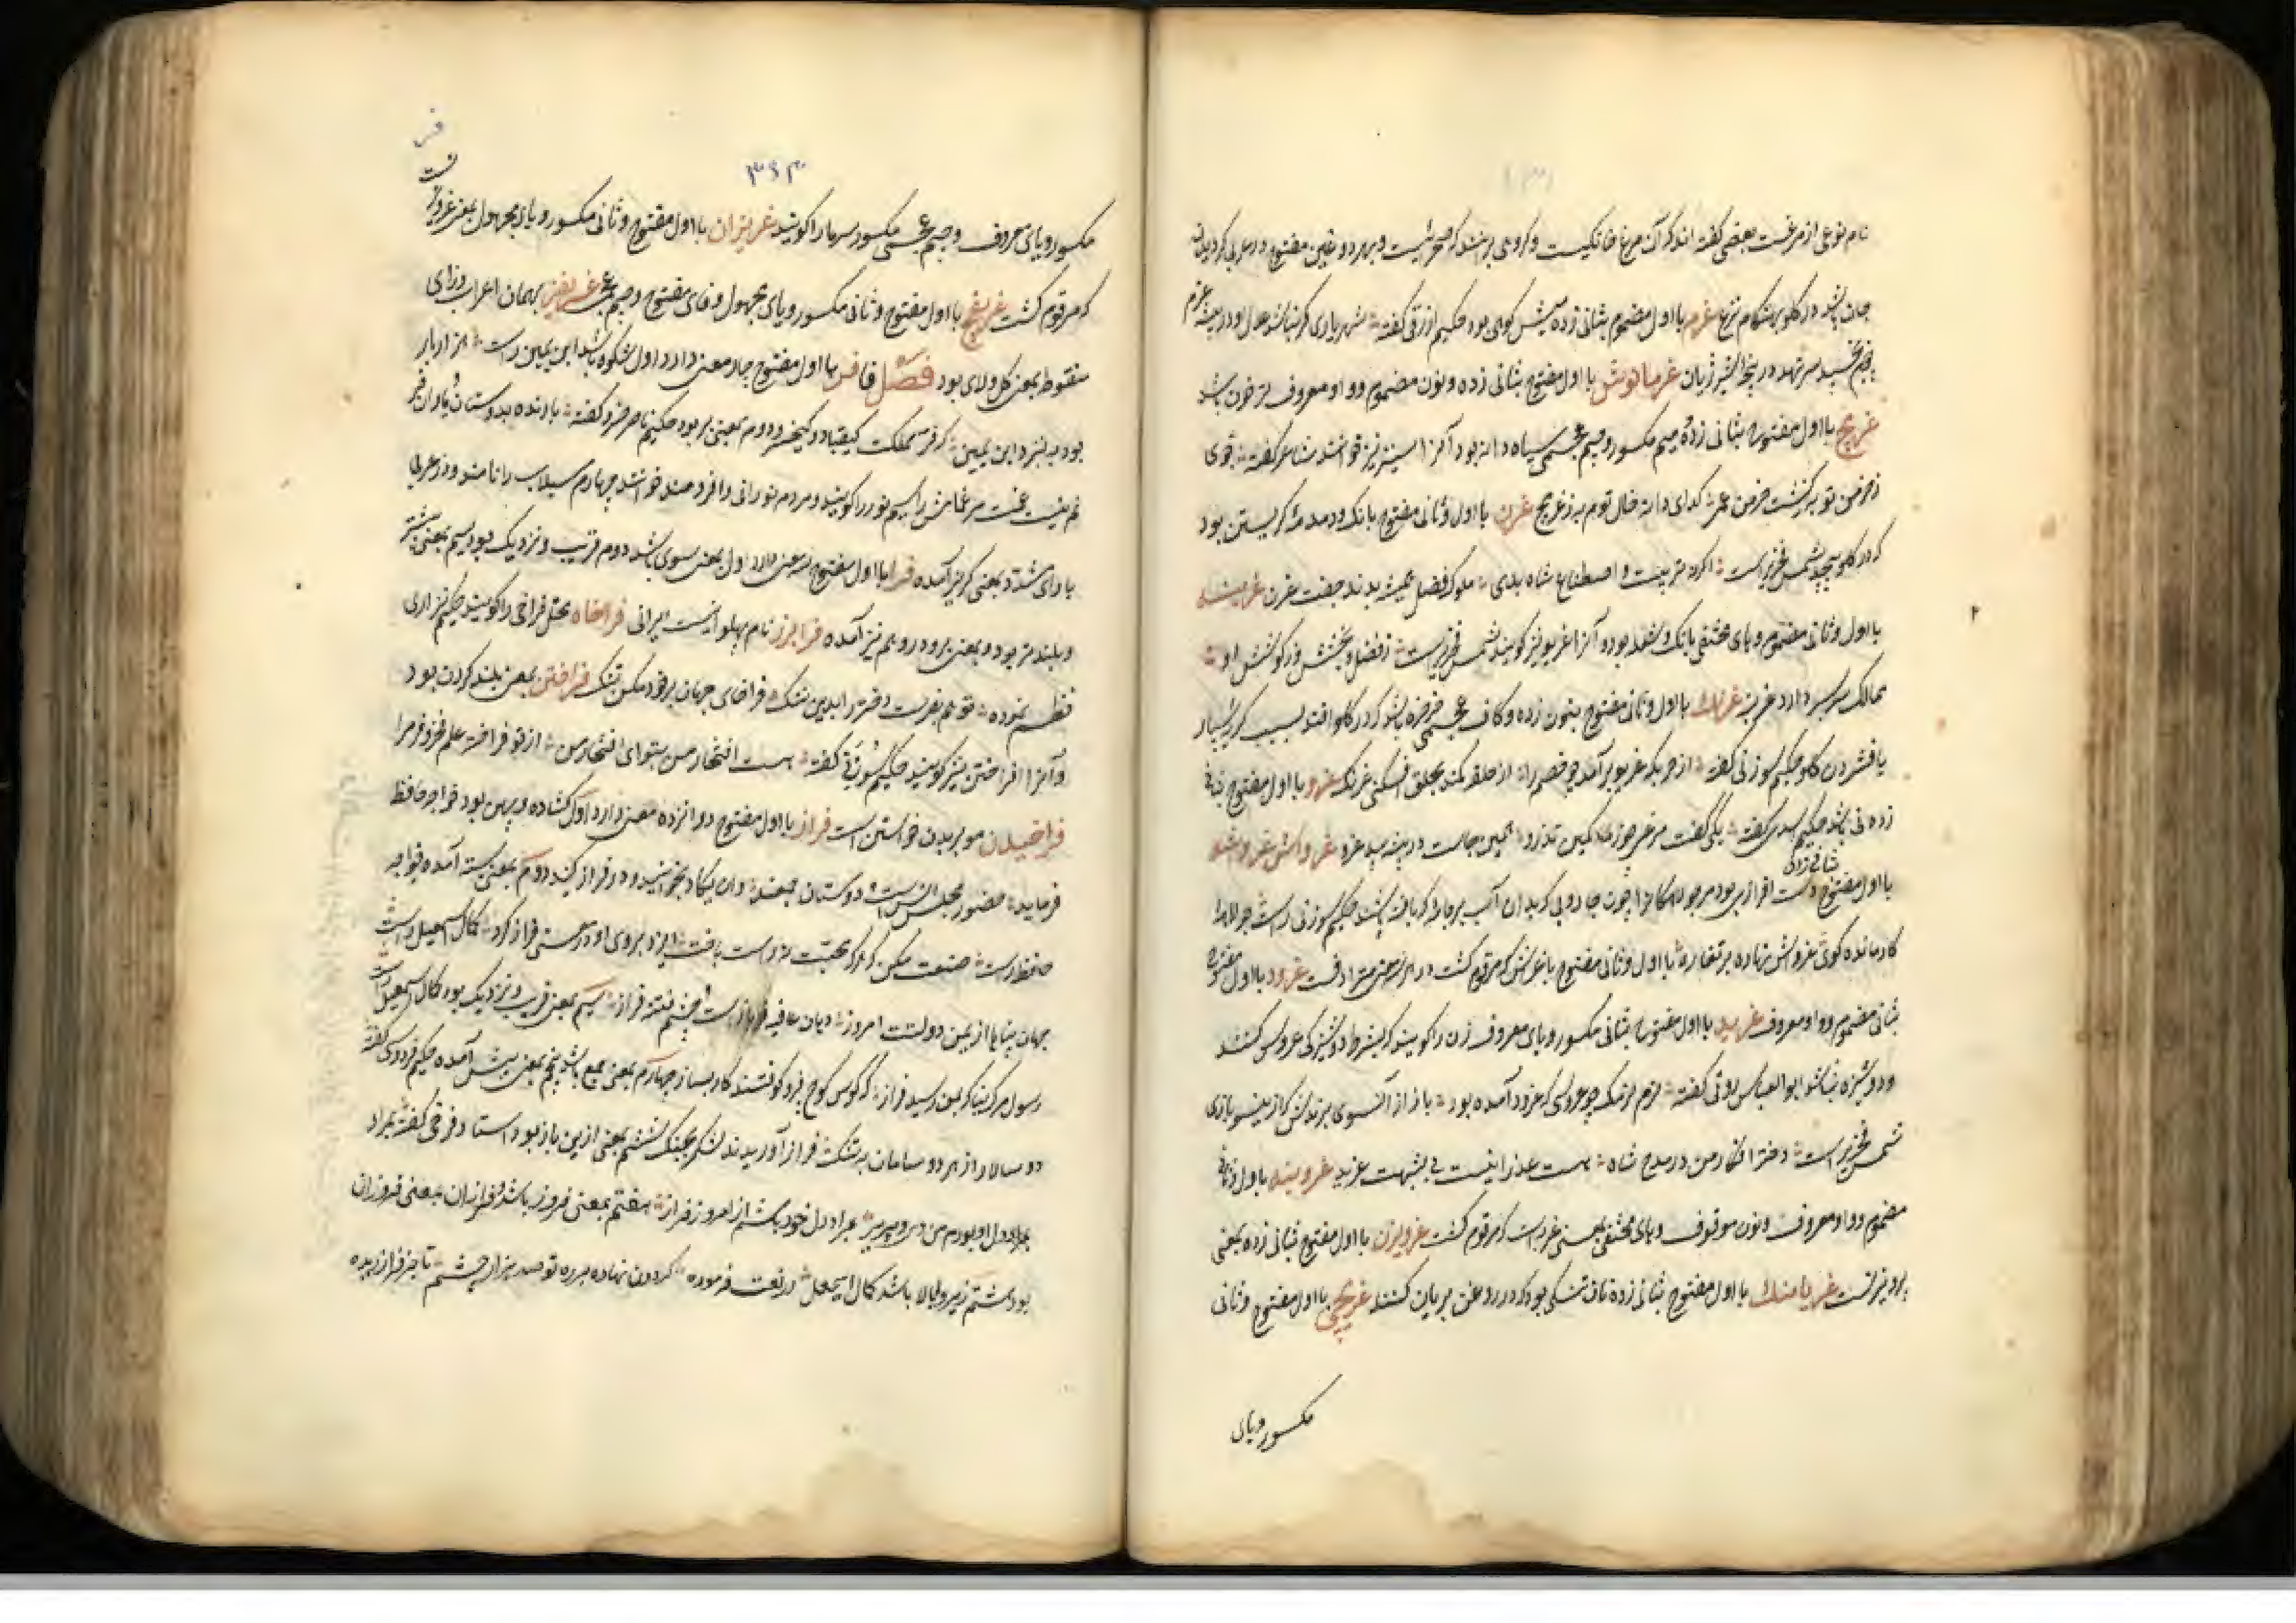 نام نوعی از مرغست بعضی گفته اند که آن مرغ خانگیست و گروهی برانند که صحرائیست و بهر دو غین مفتوح در عربی گردیدن
جان باشد در گلو بهنگام نزع غرم با اول مضموم بثانی زده میش کوهی بود حکیم ازرقی گفته شهریاری کز نهیب
سر نهد در پنجه شیر ژیان غرمانوش با اول مفتوح بثانی زده و نون مضموم و واو معروف ترخون باشد
غرمج با اول مفتوح بثانی زده و میم مکسور و جیم عجمی سیاه دانه بود آنرا سینیز نیز خوانند شاعر گفته جوی
ز خرمن تو به زکشت خرمن عمر گدای دانه خال توم به ز غرمج غرن با اول و ثانی مفتوح بانک و دمدمه گریستن بود
که در گلو پیچد شمس فخری راست اگر نه تربیت و اصطناع شاه بدی ملوک فضل همیشه بدند جفت غرن غرنبه
با اول و ثانی مضموم و های مختفی بانک و شغله بود و آنرا غریو نیز گویند شمس فخری راست ز فضل و بخشش و کوشش او
ممالک سربسر دارد غرنبه غرنک با اول و ثانی مفتوح بنون زده و کاف عجمی خرخره باشد که در گلو افتد بسبب گریه بسیار
یا فشردن گلو حکیم سوزنی گفته از حربگه غریو برآمد چو خصم را از حلقه کمند بحلق افکنی غرنک غرو با اول مفتوح بثانی
زده نی باشد حکیم اسدی گفته یکی گفت مرغی چو زرین تذرو همین جاست در بیشه بید و غرو غرواش غرواشه
با اول مفتوح بثانی زده دست افزاری بود مر جولاهکانرا چون جاروبی که بدان آب بر جامه که بافته باشند حکیم سوزنی راست جولاه را
کار مانده گوی غرواش نهاده بر تغاره با اول و ثانی مفتوح با غرش که مرقوم گشت در این معنی مترادفست غرود با اول مفتوح
بثانی مضموم و واو معروف غرید با اول مفتوح بثانی مکسور و یای معروف زن را گویند که بشرط دوشیزگی عروس کنند
و دوشیزه نباشد ابو العباس رونی گفته نرم نرمک چو عروسی که غرید آمده بود باز از آنسوی برندش که ازینسو بازی
شمس فخری راست دختر افکار من در مدح شاه هست عذرا نیست بی شبهت غرید غرونبه با اول و ثانی
مضموم و واو معروف و نون موقوف و های مختفی بمعنی غرنبه است که مرقوم گشت غرویزن با اول مفتوح بثانی زده بمعنی
پرویزنست غریاسنک با اول مفتوح بثانی زده نان تنکی بود که در روغن بریان کنند غریچی با اول مفتوح و ثانی
مکسور و یای
فر
ف
۳۶۳
مکسور و یای معروف و جیم عجمی مکسور سرما را گویند غریزان با اول مفتوح و ثانی مکسور و یای مجهول بمعنی غرویزن
که مرقوم گشت غریفج با اول مفتوح و ثانی مکسور و یای مجهول و فای مفتوح و جیم عجمی غریفژ بهمان اعراب و زای
منقوط بمعنی گل و لای بود فصل فا فر با اول مفتوح چار معنی دارد اول شکوه باشد ابن یمین راست هزار بار
بود به بنزد ابن یمین که فر مملکت کیقباد و کیخسرو دوم بمعنی پر بود حکیم ناصر خسرو گفته
سیم نور را گویند و مردم نورانی را فرومند خوانند چهارم سیلاب را نامند و در عربی
با رای مشدد بمعنی گریز آمده فرا با اول مفتوح سه معنی دارد اول بمعنی سوی باشد دوم قریب و نزدیک بود سیم بمعنی بیشتر
و بلندتر بود و بمعنی بر و در و هم نیز آمده فرابرز نام پهلوانیست ایرانی فراخاه محل فراخی را گویند حکیم نزاری
نظم نموده تو هم بفرست دختر را بدین ننک فراخای جهان بر خود مکن تنک فراختن بمعنی بلند کردن بود
و آنرا افراختن نیز گویند حکیم سوزنی گفته هست افتخار من بتو ای افتخار من از تو فراخته علم فخر و فر مرا
فراخیدن مو بر بدن خواستن است فراز با اول مفتوح دوازده معنی دارد اول گشاده و پهن بود خواجه حافظ
فرماید حضور مجلس انس است و دوستان جمعند وان یکاد بخوانید و در فراز کنید دوم بمعنی بسته آمده خواجه
حافظ راست صنعت مکن که هر که محبت نه راست باخت ایزد بروی او در معنی فراز کرد کمال اسمعیل راست
جهان پناها از یمن دولتت امروز دهان عافیه باز است و چشم فتنه فراز سیم بمعنی قریب و نزدیک بود کمال اسمعیل راست
رسول مرگ بناگه بمن رسید فراز که کوس کوچ فرو کوفتند کار بساز چهارم بمعنی جمع باشد پنجم بمعنی پیش آمده حکیم فردوسی گفته
دو سالار از هر دو سامان به تنک فراز آوریدند لشکر بجنک ششم بمعنی ازین باز بود استاد فرخی گفته بمراد
بمراد دل او بودم من دی و پریر بمراد دل خود باشم از امروز فراز هفتم بمعنی فروز باشد و فرازان بمعنی فروزان
بود هشتم زبر و بالا باشد کمال اسمعیل در نعت فرموده گردون نهاده بر ره تو صد هزار چشم تا جز فراز دیده